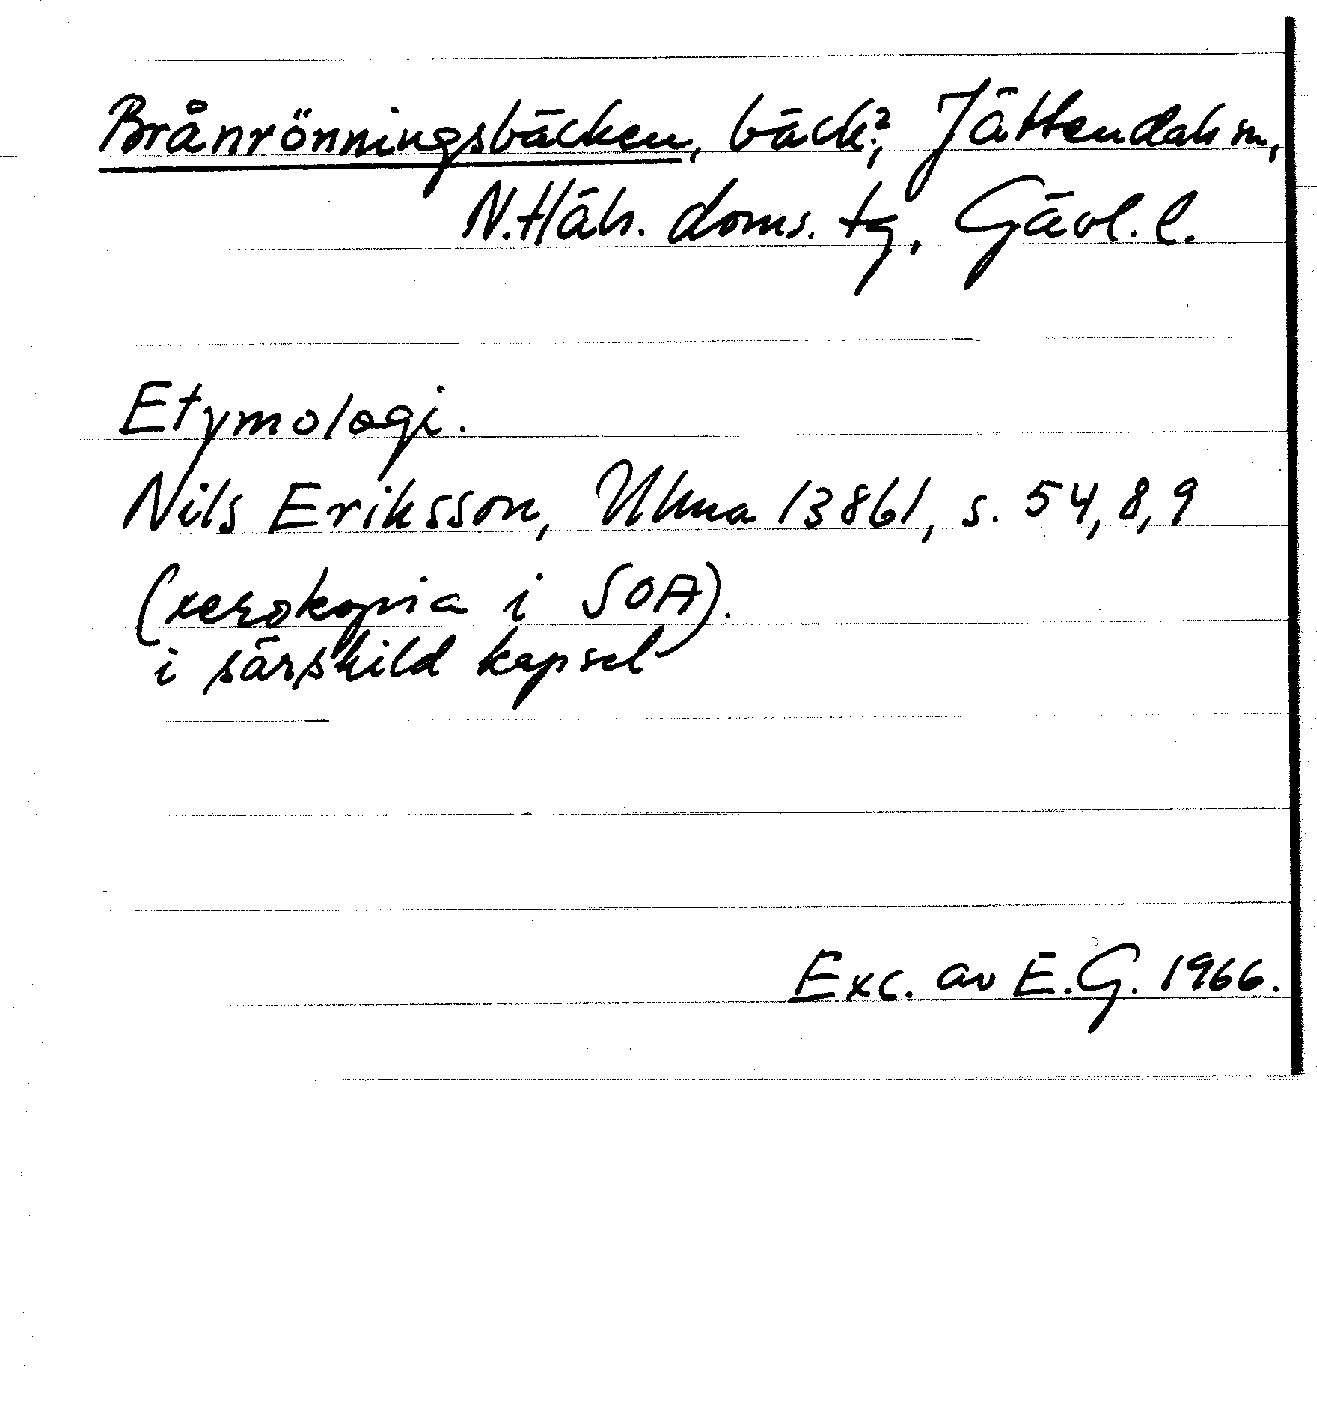 Brånrönningsbäcken, bäck?, Jättendals sn,
N. Häls. doms. tg, Gävl. l.
Etymologi.
Nils Eriksson, Ulma 13861, s. 54, 8, 9
(xerokopia i SOA).
i särskild kapsel
Exc. av E.G. 1966.